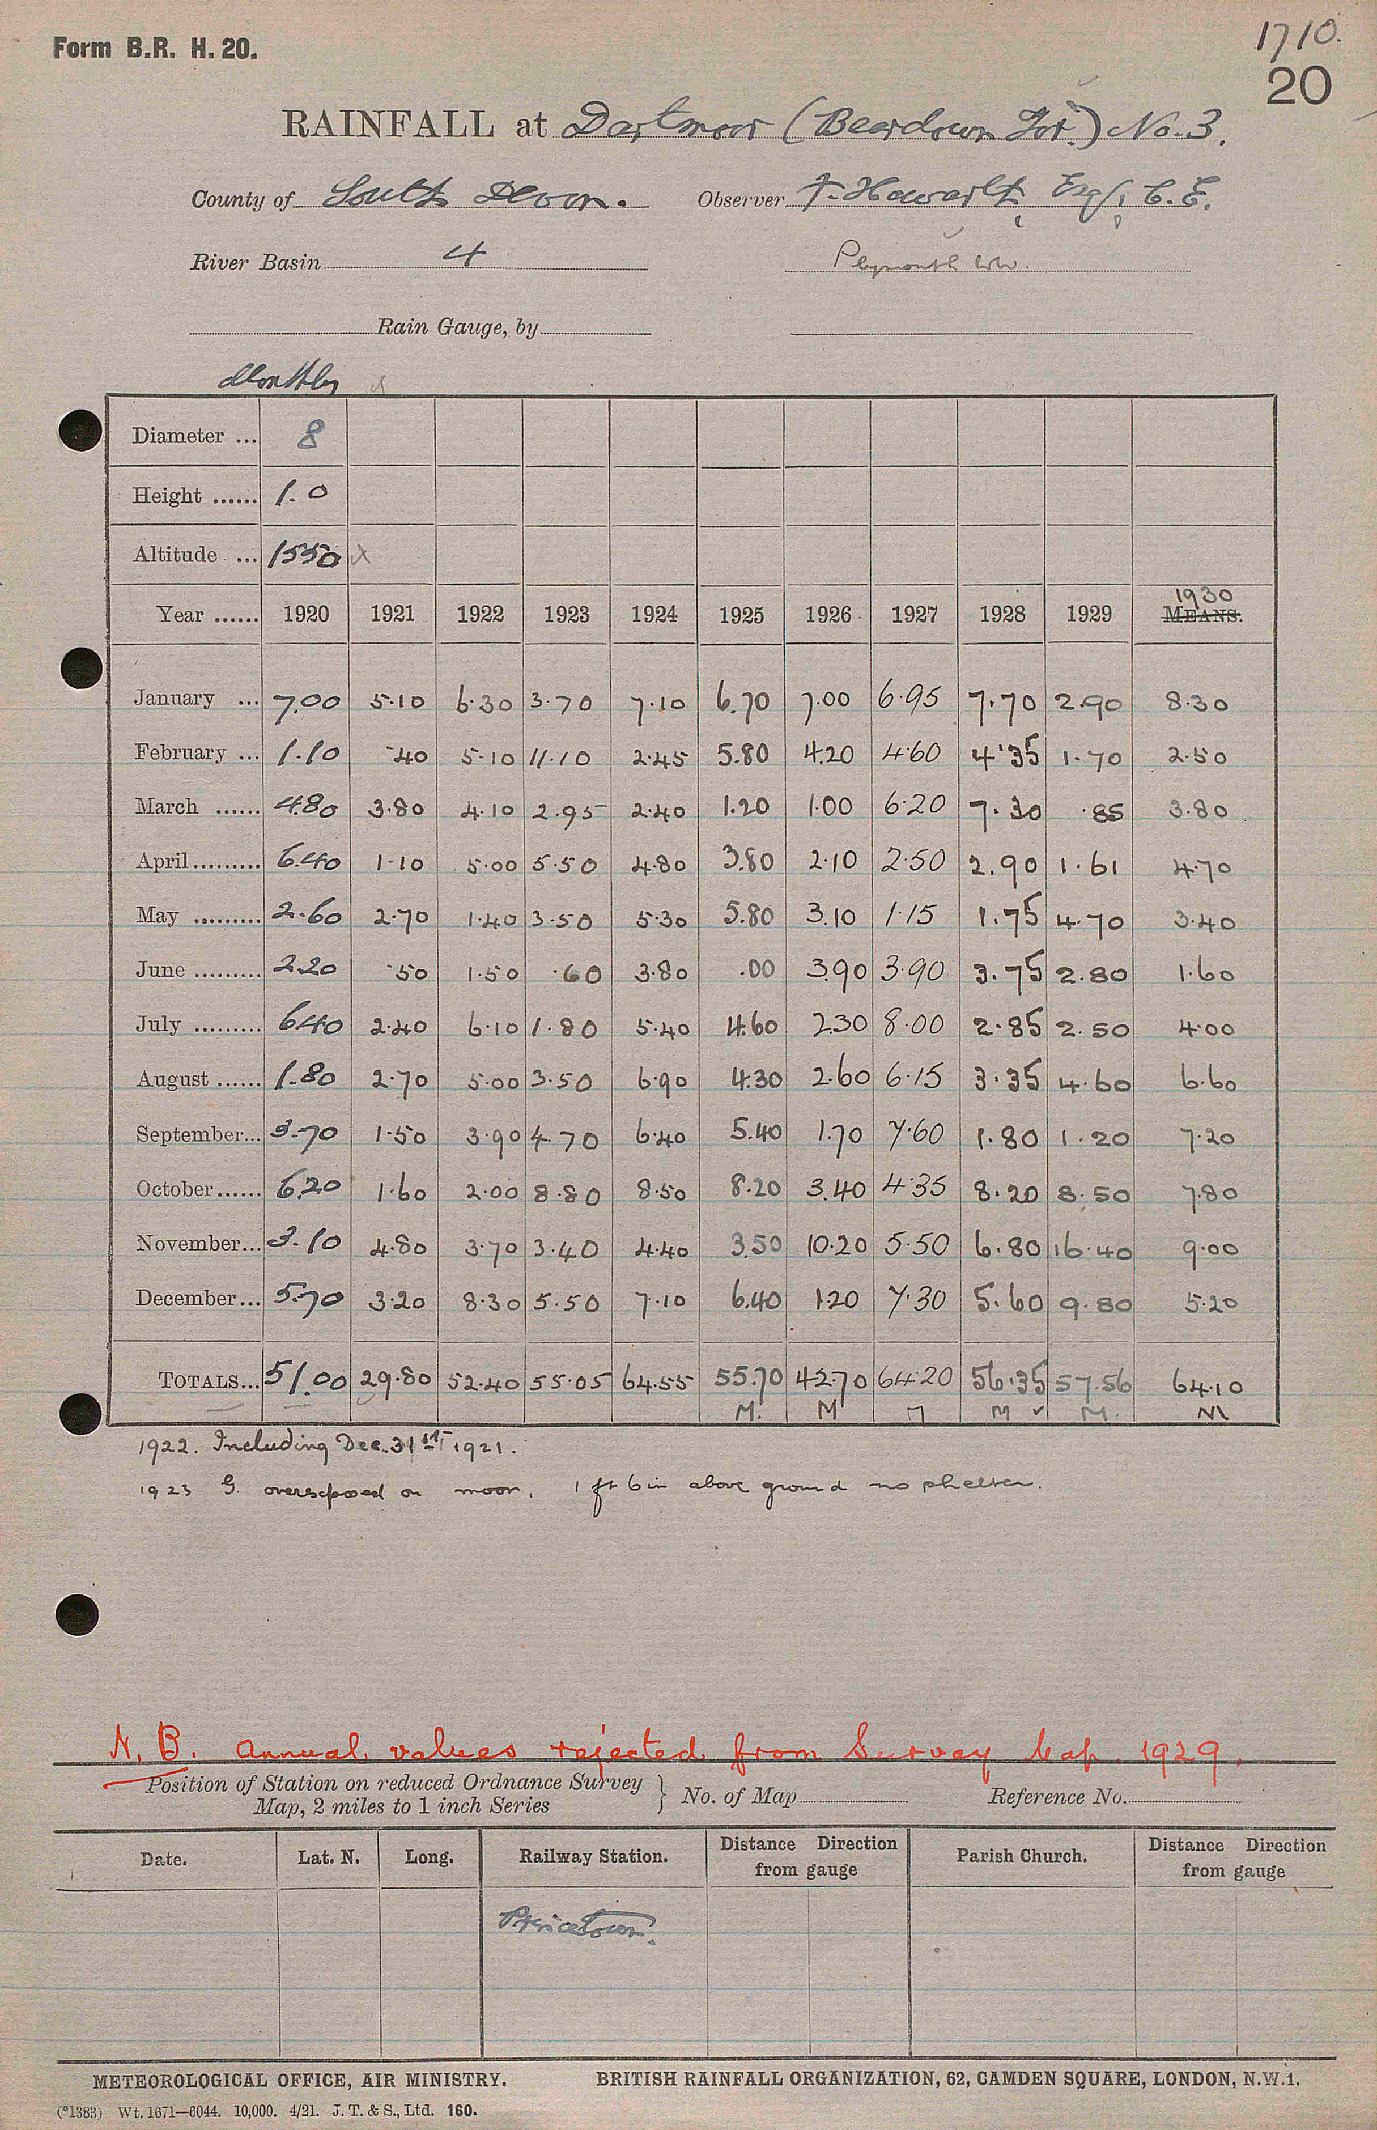 Form B.R. H. 20.
1710.
20
RAINFALL at Dartmoor (Beardown Tor.) No. 3.
County of South Devon. Observer F. Howarth, Esq., C.E.
River Basin 4 Plymouth WW.
Rain Gauge, by
Monthly
Diameter ... 8
Height ...... 1.0
Altitude ... 1550
1930
Year ...... 1920 1921 1922 1923 1924 1925 1926 1927 1928 1929 MEANS.
January ... 7.00 5.10 6.30 3.70 7.10 6.70 7.00 6.95 7.70 2.90 8.30
February ... 1.10 .40 5.10 11.10 2.45 5.80 4.20 4.60 4.35 1.70 2.50
March ...... 4.80 3.80 4.10 2.95 2.40 1.20 1.00 6.20 7.30 .85 3.80
April ......... 6.40 1.10 5.00 5.50 4.80 3.80 2.10 2.50 2.90 1.61 4.70
May ......... 2.60 2.70 1.40 3.50 5.30 5.80 3.10 1.15 1.75 4.70 3.40
June ......... 2.20 .50 1.50 .60 3.80 .00 3.90 3.90 3.75 2.80 1.60
July ......... 6.40 2.40 6.10 1.80 5.40 4.60 2.30 8.00 2.85 2.50 4.00
August ...... 1.80 2.70 5.00 3.50 6.90 4.30 2.60 6.15 3.35 4.60 6.60
September... 3.70 1.50 3.90 4.70 6.40 5.40 1.70 7.60 1.80 1.20 7.20
October...... 6.20 1.60 2.00 8.80 8.50 8.20 3.40 4.35 8.20 8.50 7.80
November... 3.10 4.80 3.70 3.40 4.40 3.50 10.20 5.50 6.80 16.40 9.00
December... 5.70 3.20 8.30 5.50 7.10 6.40 1.20 7.30 5.60 9.80 5.20
TOTALS... 51.00 29.80 52.40 55.05 64.55 55.70 42.70 64.20 56.35 57.56 64.10
M. M M M M. M
1922. Including Dec. 31st 1921.
1923 G. overexposed on moor, 1 ft 6 in above ground no shelter.
N.B. Annual values rejected from Survey Map 1929.
Position of Station on reduced Ordnance Survey
Map, 2 miles to 1 inch Series } No. of Map Reference No.
Date. Lat. N. Long. Railway Station. Distance Direction from gauge Parish Church. Distance Direction from gauge
Princetown.
METEOROLOGICAL OFFICE, AIR MINISTRY. BRITISH RAINFALL ORGANIZATION, 62, CAMDEN SQUARE, LONDON, N.W.1.
(*1383) Wt. 1671—6044. 10,000. 4/21. J. T. & S., Ltd. 160.